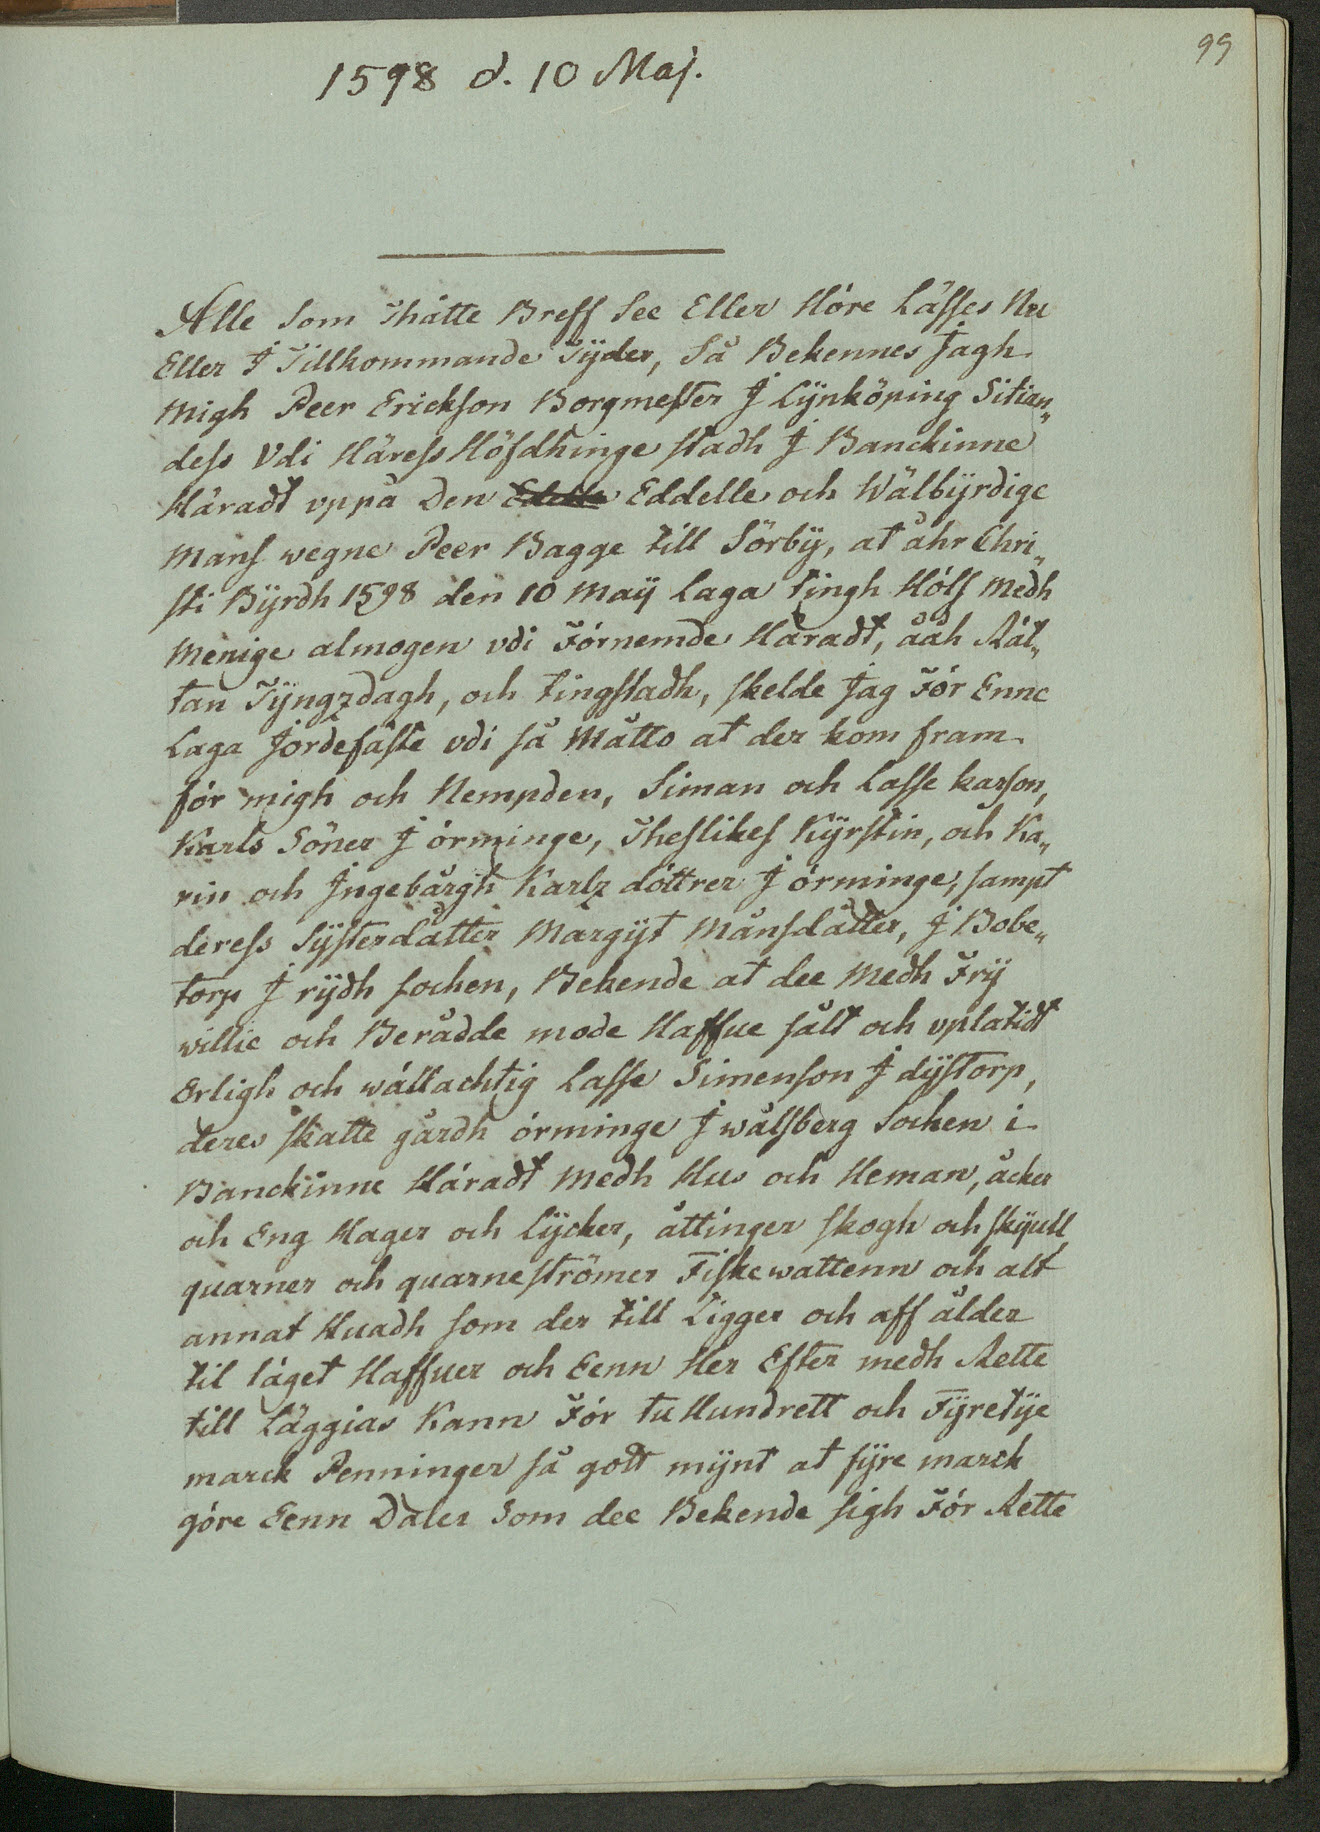 99
1598 d. 10 Maj.
Alle Som Thåtte Breff See Eller Höre Låsses Nu
Eller J Tillkommande Tijder, Så Bekennes Jagh
Migh Peer Erickson Borgmester J Lÿnköping Sitian„
dess Vdi Häress Höfdhinge stadh J Banckinne
Häradt vppå Den Edelle Eddelle och Wälbÿrdige
Mans wegne Peer Bagge till Sörbÿ, at åhr Chri„
sti Bÿrdh 1598 den 10 Maÿ Laga tingh Höls Medh
Menige almogen vdi Förnemde Häradt, ååh Rät„
tan Tÿngzdagh, och tingstadh, skelde Jag För Enne
Laga Jordefäste vdi så Måtto at der kom fram
för migh och Nempden, Siman och Lasse karson,
Karls Söner J örminge, Theslikes Kÿrstin, och Ka„
rin och Jngebårgh Karlz döttrer J örminge, sampt
deress Sÿsterdåtter Margÿt Månsdåtter, J Bobe„
torp J rÿdh sochen, Bekende at dee Medh Frÿ
willie och Berådde mode Haffue sålt och vplatidt
Erligh och wällachtig Lasse Simenson J dÿstorp,
deres skatte gårdh örminge J wålsberg Sochen i
Banckinne Häradt Medh Hus och Heman, åcker
och Eng Hager och Lÿcker, åttinger skogh och skÿull
quarner och quarneströmer Fiskewattenn och alt
annat Huadh som der till Ligger och aff ålder
til låget Haffuer och Eenn Her Efter medh Rette
till Läggias Kann För tu Hundrett och Fÿretÿe
marck Penninger så gott mÿnt at fÿre marck
göre Eenn Daler Som dee Bekende sigh För Rette